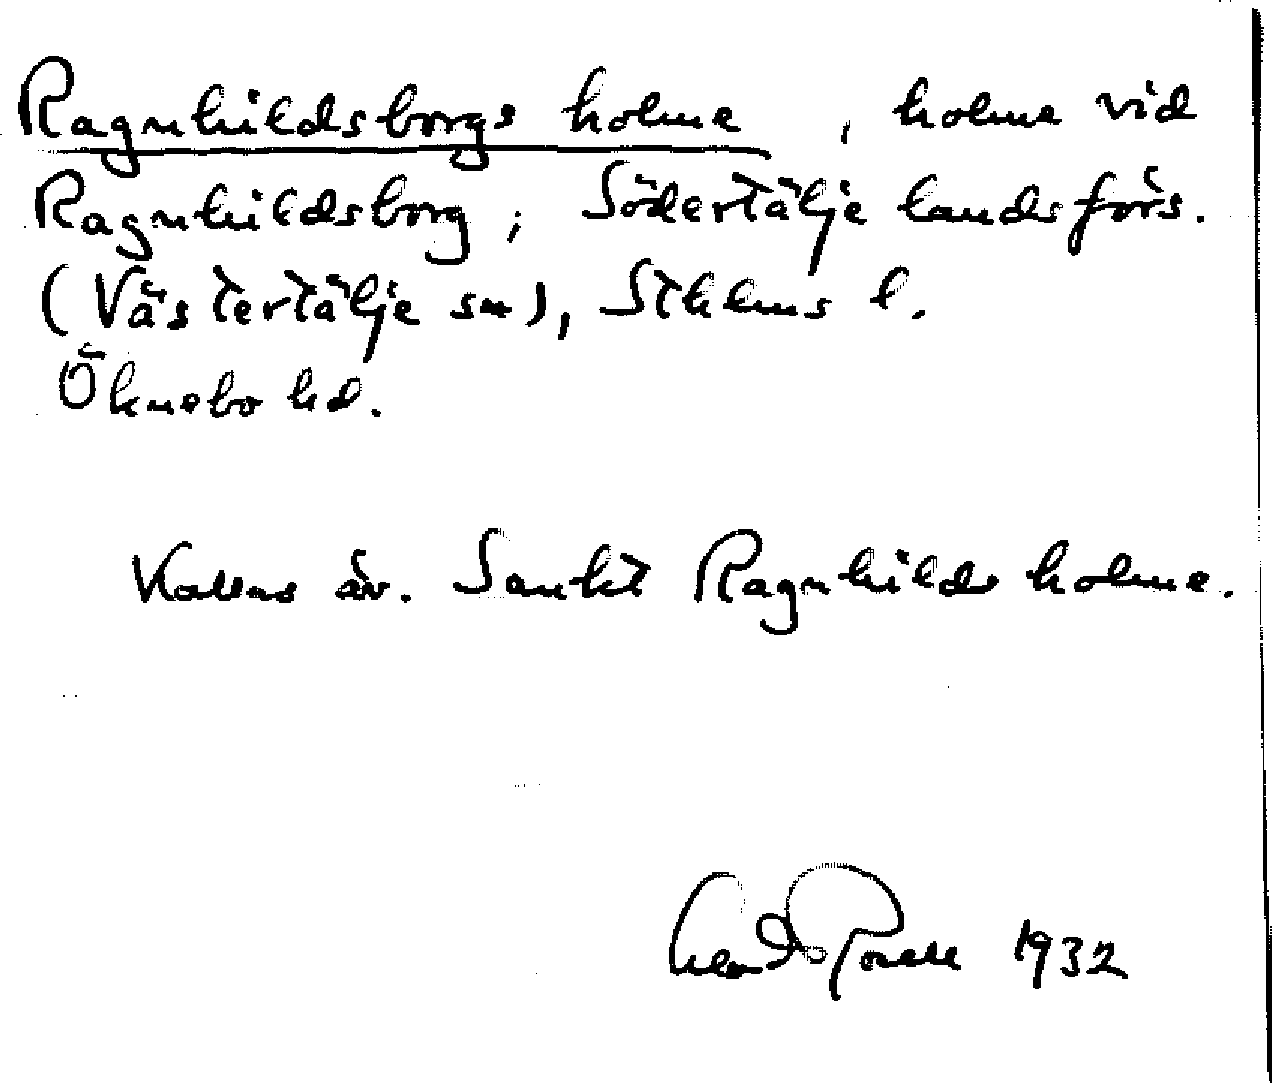 Ragnhildsborgs holme, holme vid
Ragnhildsborg, Södertälje landsförs.
(Västertälje sn), Sthlms l.
Öknebo hd.
Kallas äv. Sankt Ragnhilds holme.
1932